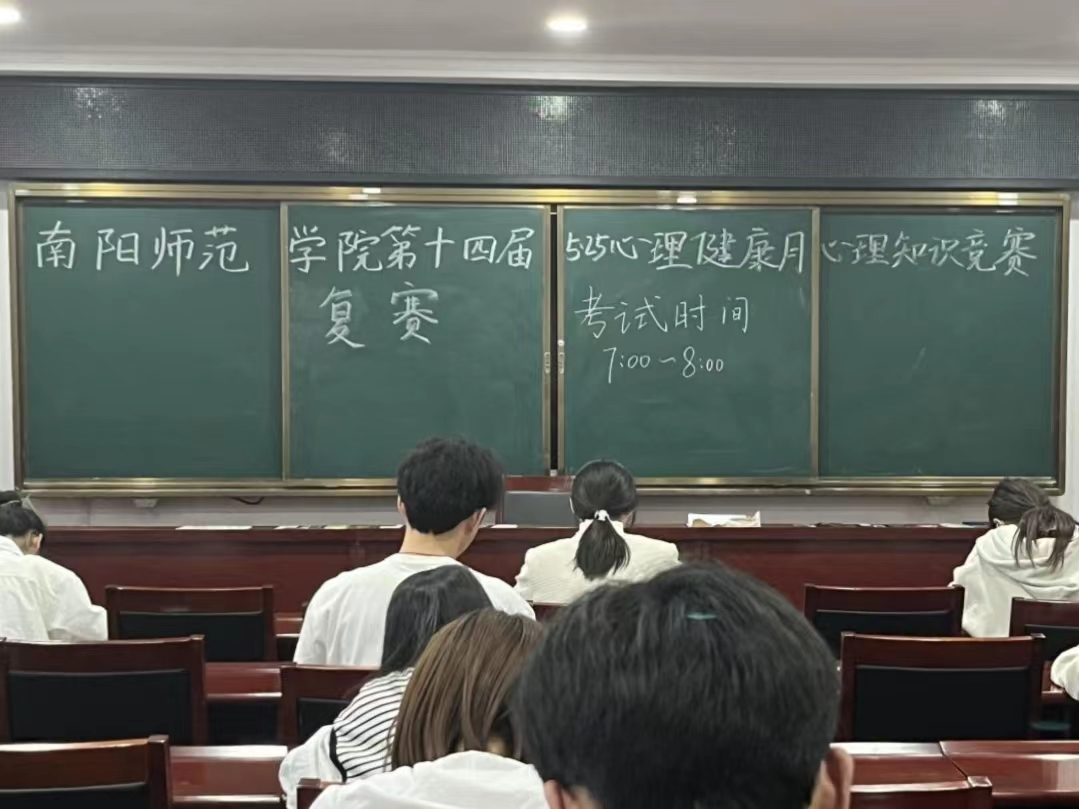 南阳师范学院第十四届5·25心理健康月心理知识竞赛
复赛
考试时间
7:00~8:00